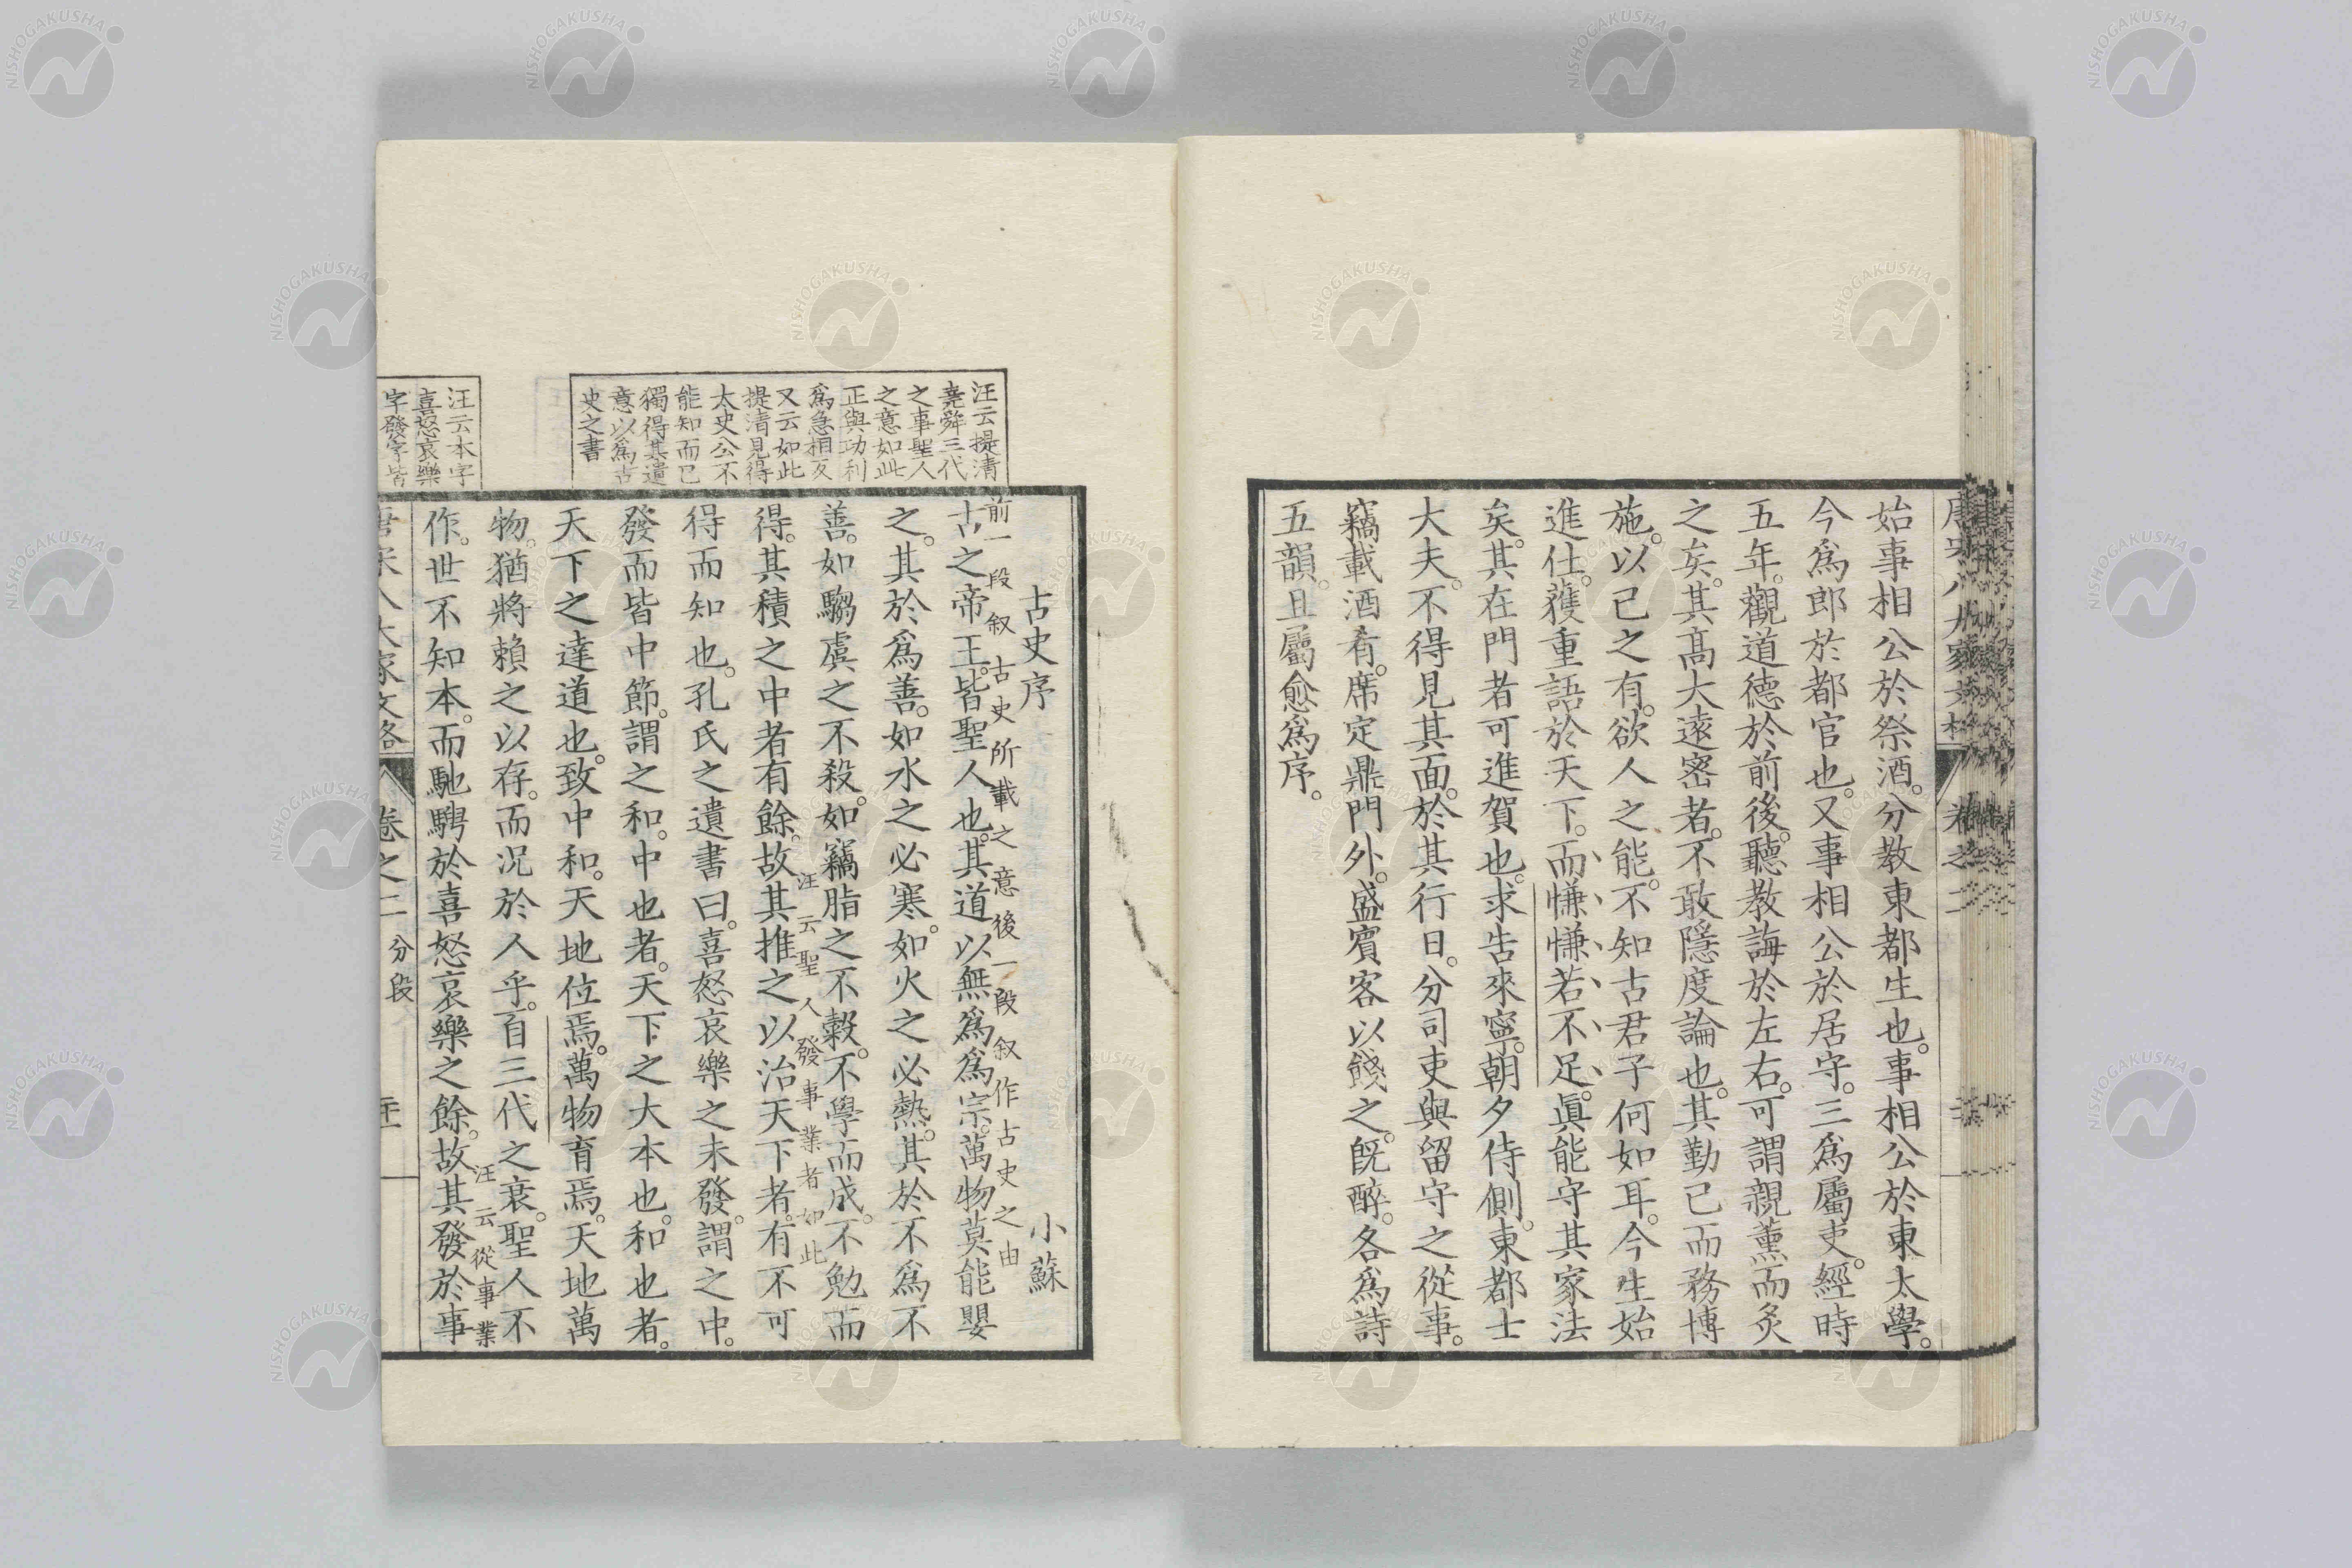 始事相公於祭酒。分教東都生也。事相公於東太學。
今爲郎於都官也。又事相公於居守。三爲屬吏。經時
五年。觀道德於前後。聽教誨於左右。可謂親薰而炙
之矣。其高大遠密者。不敢隱度論也。其勤己而務博
施。以己之有。欲人之能。不知古君子何如耳。今生始
進仕。獲重語於天下。而慊慊若不足。眞能守其家法
矣。其在門者可進賀也。求告來寧。朝夕侍側。東都士
大夫。不得見其面。於其行日。分司吏與留守之從事。
竊載酒肴。席定鼎門外。盛賓客以餞之。旣醉。各爲詩
五韻。且屬愈爲序。
汪云提清
堯舜三代
之事聖人
之意如此
正與功利
爲急相反
又云如此
提清見得
太史公不
能知而已
獨得其遺
意以爲古
史之書
古史序 小蘇
前一段叙古史所載之意後一段叙作古史之由
古之帝王。皆聖人也。其道以無爲爲宗。萬物莫能嬰
之。其於爲善。如水之必寒。如火之必熱。其於不爲不
善。如騶虞之不殺。如竊脂之不穀。不學而成。不勉而
汪云聖人發事業者如此
得。其積之中者有餘。故其推之以治天下者。有不可
得而知也。孔氏之遺書曰。喜怒哀樂之未發。謂之中。
發而皆中節。謂之和。中也者。天下之大本也。和也者。
天下之達道也。致中和。天地位焉。萬物育焉。天地萬
物。猶將賴之以存。而况於人乎。自三代之衰。聖人不
汪云從事業
作。世不知本。而馳騁於喜怒哀樂之餘。故其發於事
汪云本字
喜怒哀樂
字發字皆
唐宋八大家文格 卷之二 分段